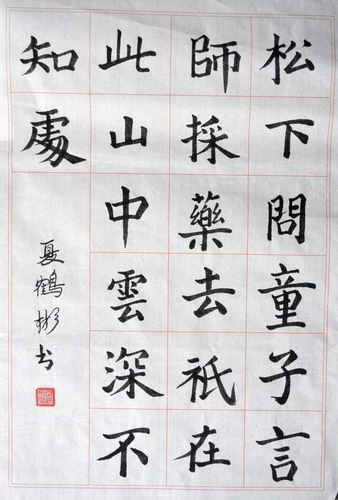 松下問童子言
師採藥去祇在
此山中雲深不
知處
夏鶴彬书